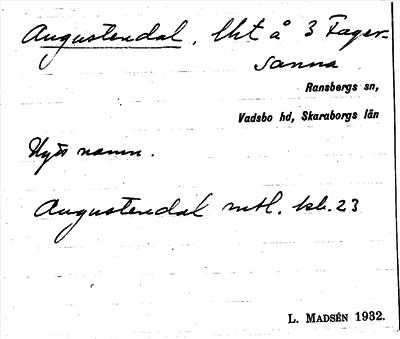 Augustendal, Uht å 3 Fager-
sanna
Ransbergs sn,
Vadsbo hd, Skaraborgs län
Nytt namn.
Augustendal mtl. kb. 23
L. MADSÉN 1932.